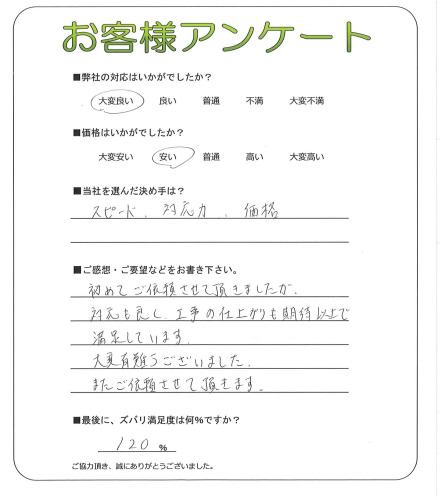 お客様アンケート
■弊社の対応はいかがでしたか？
大変良い 良い 普通 不満 大変不満
■価格はいかがでしたか？
大変安い 安い 普通 高い 大変高い
■当社を選んだ決め手は？
スピード、対応力、価格
■ご感想・ご要望などをお書き下さい。
初めてご依頼させて頂きましたが、
対応も良く、工事の仕上がりも期待以上で
満足しています。
大変有難うございました。
またご依頼させて頂きます。
■最後に、ズバリ満足度は何％ですか？
120 %
ご協力頂き、誠にありがとうございました。